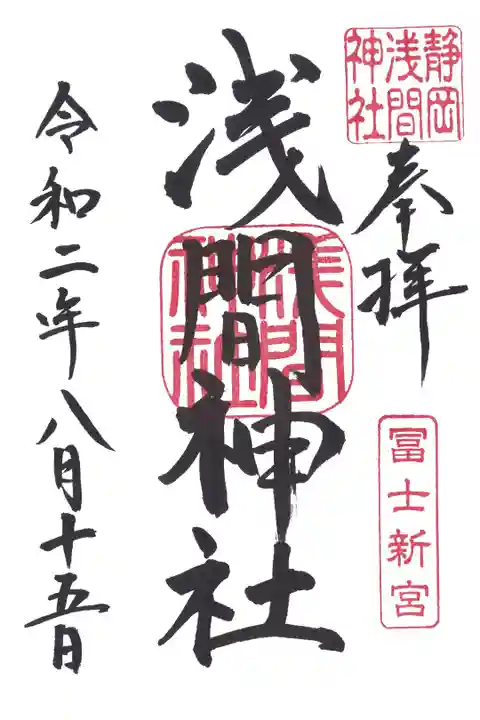 静岡
浅間
神社
奉拝
冨士新宮
浅間神社
令和二年八月十五日